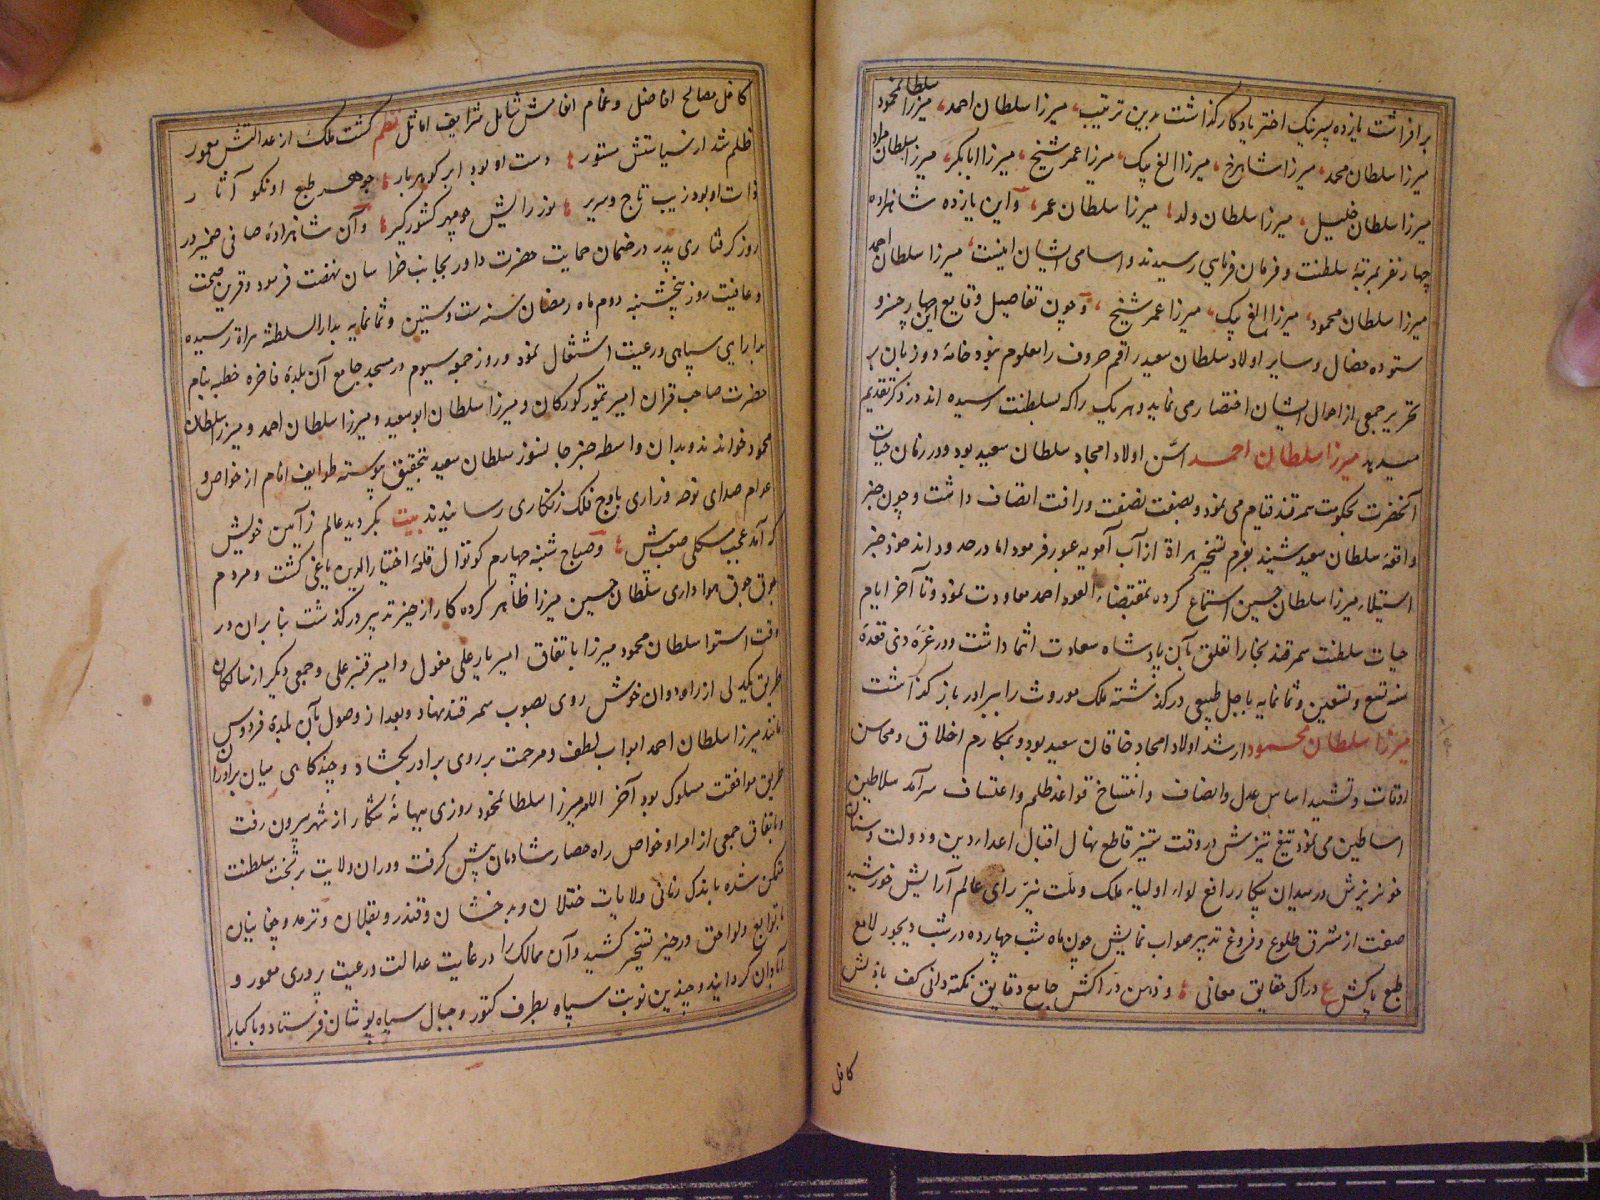 برافراشت یازده پسر نیک اختر یادگار گذاشت بدین ترتیب میرزا سلطان احمد، میرزا سلطان محمود
میرزا سلطان محمد، میرزا شاهرخ، میرزا الغ بیک، میرزا عمر شیخ، میرزا ابابکر، میرزا سلطان مراد
میرزا سلطان خلیل، میرزا سلطان ولد، میرزا سلطان عمر، و این یازده شاهزاده
چهار نفر بمرتبهٔ سلطنت و فرمان فرمایی رسیدند و اسامی ایشان اینست، میرزا سلطان احمد
میرزا سلطان محمود، میرزا الغ بیک، میرزا عمر شیخ، و چون تفاصیل وقایع این چهار خسرو
ستوده خصال و سایر اولاد سلطان سعید راقم حروف را معلوم نبود خامهٔ دو زبان
تحریر جمعی از احوال ایشان اختصار می نماید و هر یک را که بسلطنت رسیده اند در ذکر تقدیم
میدهد میرزا سلطان احمد اسن اولاد امجاد سلطان سعید بود و در زمان حیات
آنحضرت بحکومت سمرقند قیام می نمود و بصفت نصفت و رافت اتصاف داشت و چون خبر
واقعهٔ سلطان سعید شنید بعزم تسخیر هراة از آب آمویه عبور فرمود اما در حدود اندخود خبر
استیلاء میرزا سلطان حسین استماع کرده بمقتضاء العود احمد معاودت نمود و تا آخر ایام
حیات سلطنت سمرقند بخارا تعلق بآن پادشاه سعادت انتما داشت و در غرهٔ ذی قعدهٔ
سنه تسع و تسعین و ثمانمایه باجل طبیعی درگذشته ملک موروث را ببرادر باز گذاشت
میرزا سلطان محمود ارشد اولاد امجاد خاقان سعید بود و بمکارم اخلاق و محاسن
اوقات و تشیید اساس عدل و انصاف و انتساخ قواعد ظلم و اعتساف سرآمد سلاطین
اساطین می نمود تیغ تیزش در وقت ستیز قاطع نهال اقبال اعداء دین و دولت و سنان
خونریزش در میدان پیکار رافع لواء اولیاء ملک و ملت نیر رای عالم آرایش خورشید
صفت از مشرق طلوع و فروغ تدبیر صواب نمایش چون ماه شب چهارده در شب دیجور لامع
طبع پاکش ع دراک حقایق معانی و ذهن دراکش جامع دقایق نکته دانی کف باذلش
کافل
کافل مصالح افاضل و عمام انعامش شامل شرایف اماثل نظم گشت ملک از عدالتش معمور
ظلم شد از سیاستش مستور دست او بود ابر گوهربار جوهر طبع او نکو آثار
ذات او بود زیب تاج و سریر نور رایش چو مهر کشورگیر و آن شاهزادهٔ صافی ضمیر در
روز گرفتاری پدر در ضمان حمایت حضرت داور بجانب خراسان نهضت فرمود و قرین صحت
و عافیت روز پنجشنبه دوم ماه رمضان سنه ست و ستین و ثمانمایه بدار السلطنه هراة رسیده
بدارایی سپاهی و رعیت اشتغال نمود و روز جمعه سیوم در مسجد جامع آن بلدهٔ فاخره خطبه بنام
حضرت صاحب قران امیر تیمور کورکان و میرزا سلطان ابوسعید و میرزا سلطان احمد و میرزا سلطان
محمود خواندند و بدان واسطه خبر جانسوز سلطان سعید بتحقیق پیوسته طوایف انام از خواص و
عوام صدای نوحه و زاری باوج فلک زنگاری رسانیدند بیت بگردید عالم ز آیین خویش
که آمد عجب مشکلی صعب پیش و صباح شنبه چهارم کوتوال قلعهٔ اختیار الدین یاغی گشت و مردم
جوق جوق هواداری سلطان حسین میرزا ظاهر کرده کار از حیز تدبیر درگذشت بنابران در
وقت استوا سلطان محمود میرزا باتفاق امیر یار علی مغول و امیر قنبر علی و جمعی دیگر از نساکان
طریق یکدلی از راه دوان خوش روی بصوب سمرقند نهاد و بعد از وصول بآن بلدهٔ فردوس
مانند میرزا سلطان احمد ابواب لطف و مرحمت بر روی برادر بگشاد و چندگاهی میان برادران
طریق موافقت مسلوک بود آخر الامر میرزا سلطانمحمود روزی ببهانهٔ شکار از شهر بیرون رفت
و باتفاق جمعی از امرا و خواص راه حصار شادمان پیش گرفت و دران ولایت بر تخت سلطنت
متمکن شده باندک زمانی ولایات ختلان و بدخشان و قندز و بقلان و ترمد و چغانیان
با توابع و لواحق در حیز تسخیر کشید و آن ممالک را در غایت عدالت و رعیت پروری معمور و
آبادان گردانید و چندین نوبت سپاه بطرف کتور و جبال سیاه پوشان فرستاد و با کفار